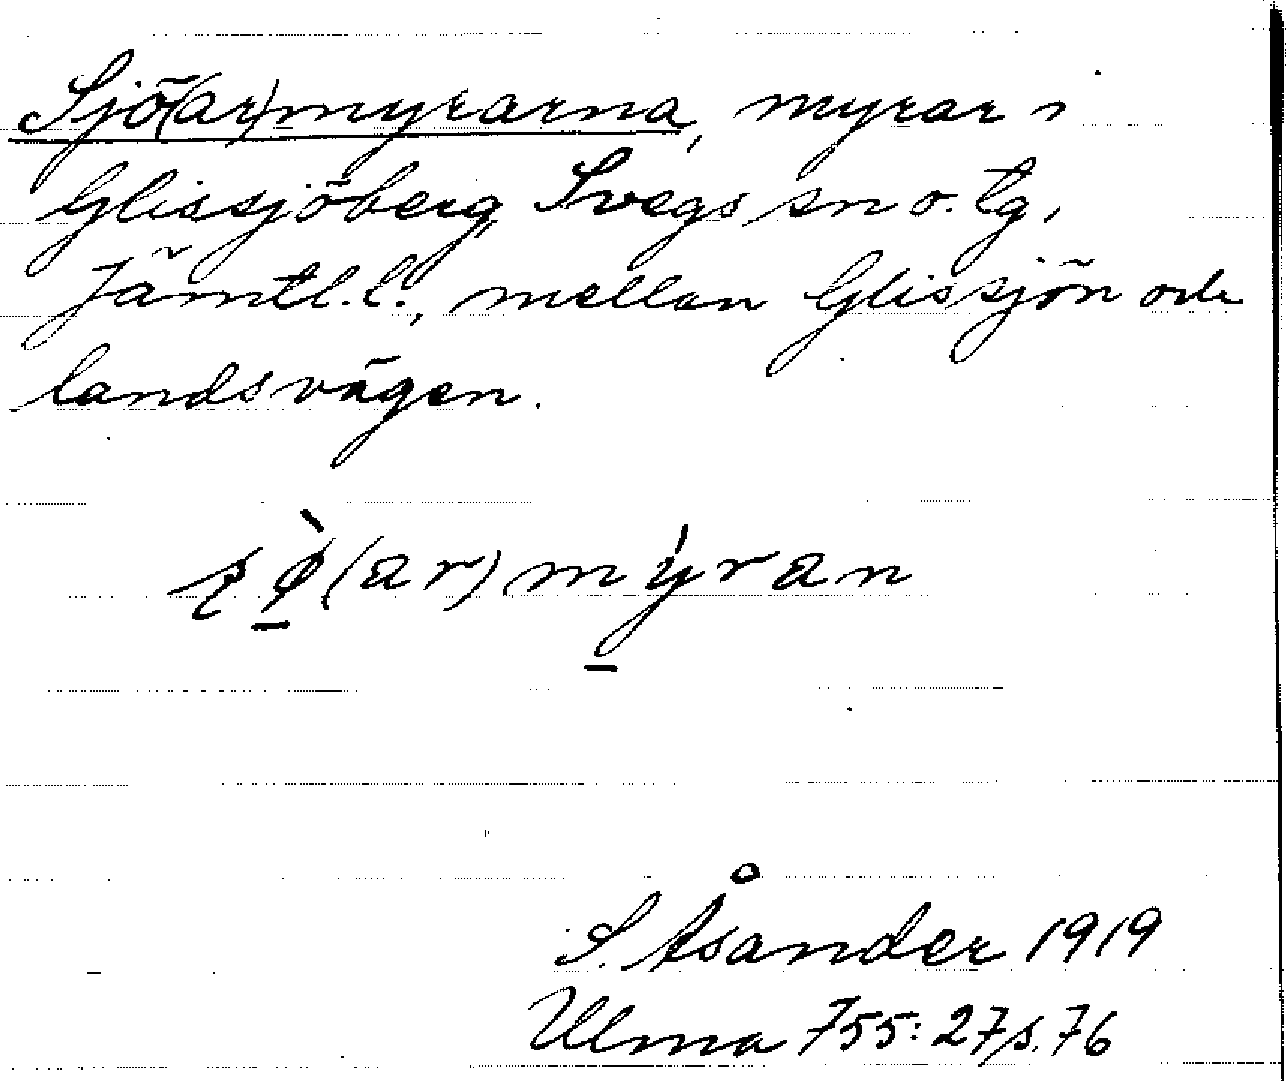 Sjö(ar)myrarna, myrar i
Glissjöberg, Svegs sn o. tg,
Jämtl. l., mellan Glissjön och
landsvägen.
ʂø̠̀(ar)mý̠ran
S. Åsander 1919
Ulma 755:27 s. 76